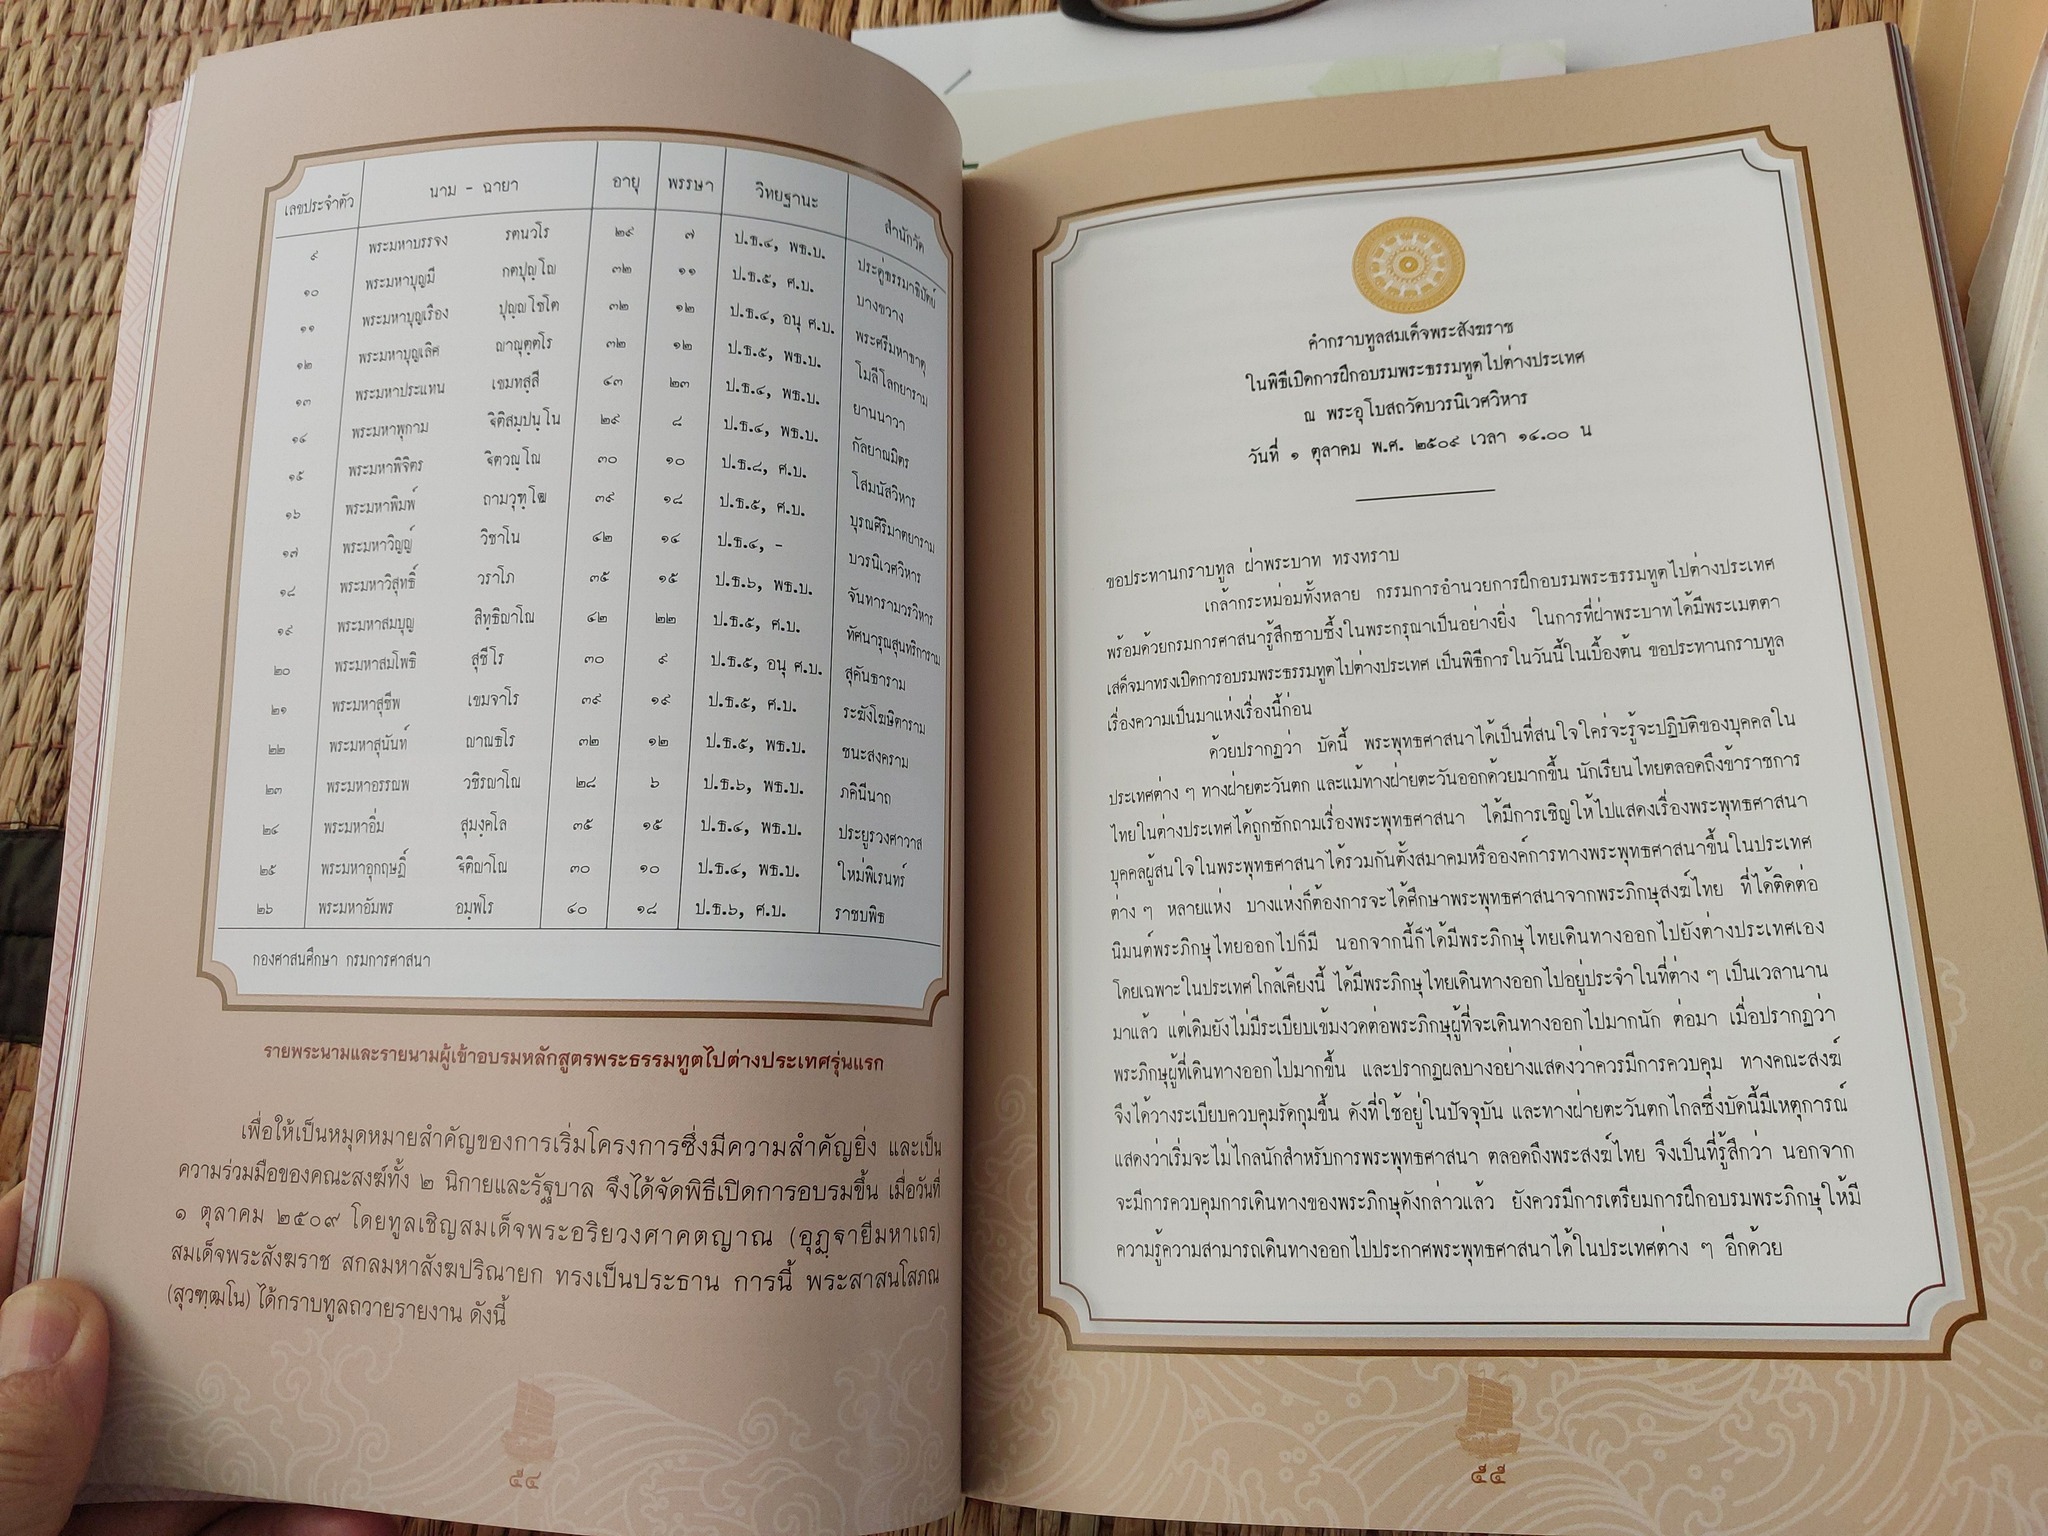 เลขประจำตัว นาม - ฉายา อายุ พรรษา วิทยฐานะ สำนักวัด
๙ พระมหาบรรจง รตนวโร ๒๙ ๗ ป.ธ.๔, พธ.บ. ประดู่ธรรมาธิปัตย์
๑๐ พระมหาบุญมี กตปุญฺโญ ๓๒ ๑๑ ป.ธ.๕, ศ.บ. บางขวาง
๑๑ พระมหาบุญเรือง ปุญฺญโชโต ๓๒ ๑๒ ป.ธ.๔, อนุ ศ.บ. พระศรีมหาธาตุ
๑๒ พระมหาบุญเลิศ ญาณุตฺตโร ๓๒ ๑๒ ป.ธ.๕, พธ.บ. โมลีโลกยาราม
๑๓ พระมหาประแทน เขมทสฺสี ๔๓ ๒๓ ป.ธ.๔, พธ.บ. ยานนาวา
๑๔ พระมหาพุกาม ฐิติสมฺปนฺโน ๒๙ ๘ ป.ธ.๔, พธ.บ. กัลยาณมิตร
๑๕ พระมหาพิจิตร ฐิตวณฺโณ ๓๐ ๑๐ ป.ธ.๘, ศ.บ. โสมนัสวิหาร
๑๖ พระมหาพิมพ์ ถามวุฑฺโฒ ๓๙ ๑๘ ป.ธ.๕, ศ.บ. บุรณศิริมาตยาราม
๑๗ พระมหาวิญญ์ วิชาโน ๔๒ ๑๔ ป.ธ.๔, - บวรนิเวศวิหาร
๑๘ พระมหาวิสุทธิ์ วราโภ ๓๕ ๑๕ ป.ธ.๖, พธ.บ. จันทารามวรวิหาร
๑๙ พระมหาสมบุญ สิทฺธิญาโณ ๔๒ ๒๒ ป.ธ.๕, ศ.บ. ทัศนารุณสุนทริการาม
๒๐ พระมหาสมโพธิ สุชีโร ๓๐ ๙ ป.ธ.๕, อนุ ศ.บ. สุคันธาราม
๒๑ พระมหาสุชีพ เขมจาโร ๓๙ ๑๙ ป.ธ.๕, ศ.บ. ระฆังโฆษิตาราม
๒๒ พระมหาสุนันท์ ญาณธโร ๓๒ ๑๒ ป.ธ.๕, พธ.บ. ชนะสงคราม
๒๓ พระมหาอรรณพ วชิรญาโณ ๒๘ ๖ ป.ธ.๖, พธ.บ. ภคินีนาถ
๒๔ พระมหาอิ่ม สุมงฺคโล ๓๕ ๑๕ ป.ธ.๔, พธ.บ. ประยูรวงศาวาส
๒๕ พระมหาอุกฤษฎิ์ ฐิติญาโณ ๓๐ ๑๐ ป.ธ.๔, พธ.บ. ใหม่พิเรนทร์
๒๖ พระมหาอัมพร อมฺพโร ๔๐ ๑๘ ป.ธ.๖, ศ.บ. ราชบพิธ
กองศาสนศึกษา กรมการศาสนา
รายพระนามและรายนามผู้เข้าอบรมหลักสูตรพระธรรมทูตไปต่างประเทศรุ่นแรก
เพื่อให้เป็นหมุดหมายสำคัญของการเริ่มโครงการซึ่งมีความสำคัญยิ่ง และเป็น
ความร่วมมือของคณะสงฆ์ทั้ง ๒ นิกายและรัฐบาล จึงได้จัดพิธีเปิดการอบรมขึ้น เมื่อวันที่
๑ ตุลาคม ๒๕๐๙ โดยทูลเชิญสมเด็จพระอริยวงศาคตญาณ (อุฏฺฐายีมหาเถร)
สมเด็จพระสังฆราช สกลมหาสังฆปริณายก ทรงเป็นประธาน การนี้ พระสาสนโสภณ
(สุวฑฺฒโน) ได้กราบทูลถวายรายงาน ดังนี้
๕๔
คำกราบทูลสมเด็จพระสังฆราช
ในพิธีเปิดการฝึกอบรมพระธรรมทูตไปต่างประเทศ
ณ พระอุโบสถวัดบวรนิเวศวิหาร
วันที่ ๑ ตุลาคม พ.ศ. ๒๕๐๙ เวลา ๑๔.๐๐ น
ขอประทานกราบทูล ฝ่าพระบาท ทรงทราบ
เกล้ากระหม่อมทั้งหลาย กรรมการอำนวยการฝึกอบรมพระธรรมทูตไปต่างประเทศ
พร้อมด้วยกรมการศาสนารู้สึกซาบซึ้งในพระกรุณาเป็นอย่างยิ่ง ในการที่ฝ่าพระบาทได้มีพระเมตตา
เสด็จมาทรงเปิดการอบรมพระธรรมทูตไปต่างประเทศ เป็นพิธีการในวันนี้ในเบื้องต้น ขอประทานกราบทูล
เรื่องความเป็นมาแห่งเรื่องนี้ก่อน
ด้วยปรากฏว่า บัดนี้ พระพุทธศาสนาได้เป็นที่สนใจใคร่จะรู้จะปฏิบัติของบุคคลใน
ประเทศต่าง ๆ ทางฝ่ายตะวันตก และแม้ทางฝ่ายตะวันออกด้วยมากขึ้น นักเรียนไทยตลอดถึงข้าราชการ
ไทยในต่างประเทศได้ถูกซักถามเรื่องพระพุทธศาสนา ได้มีการเชิญให้ไปแสดงเรื่องพระพุทธศาสนา
บุคคลผู้สนใจในพระพุทธศาสนาได้รวมกันตั้งสมาคมหรือองค์การทางพระพุทธศาสนาขึ้นในประเทศ
ต่าง ๆ หลายแห่ง บางแห่งก็ต้องการจะได้ศึกษาพระพุทธศาสนาจากพระภิกษุสงฆ์ไทย ที่ได้ติดต่อ
นิมนต์พระภิกษุไทยออกไปก็มี นอกจากนี้ก็ได้มีพระภิกษุไทยเดินทางออกไปยังต่างประเทศเอง
โดยเฉพาะในประเทศใกล้เคียงนี้ ได้มีพระภิกษุไทยเดินทางออกไปอยู่ประจำในที่ต่าง ๆ เป็นเวลานาน
มาแล้ว แต่เดิมยังไม่มีระเบียบเข้มงวดต่อพระภิกษุผู้ที่จะเดินทางออกไปมากนัก ต่อมา เมื่อปรากฏว่า
พระภิกษุผู้ที่เดินทางออกไปมากขึ้น และปรากฏผลบางอย่างแสดงว่าควรมีการควบคุม ทางคณะสงฆ์
จึงได้วางระเบียบควบคุมรัดกุมขึ้น ดังที่ใช้อยู่ในปัจจุบัน และทางฝ่ายตะวันตกไกลซึ่งบัดนี้มีเหตุการณ์
แสดงว่าเริ่มจะไม่ไกลนักสำหรับการพระพุทธศาสนา ตลอดถึงพระสงฆ์ไทย จึงเป็นที่รู้สึกว่า นอกจาก
จะมีการควบคุมการเดินทางของพระภิกษุดังกล่าวแล้ว ยังควรมีการเตรียมการฝึกอบรมพระภิกษุให้มี
ความรู้ความสามารถเดินทางออกไปประกาศพระพุทธศาสนาได้ในประเทศต่าง ๆ อีกด้วย
๕๕